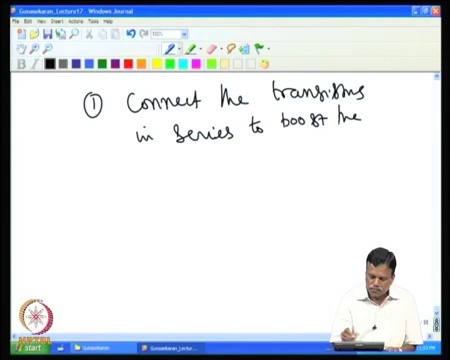 Gunasekaran_Lecture17 - Windows Journal
File Edit View Insert Actions Tools Help
100%
B I
① Connect the transistors
in series to boost the
start
Gunasekaran
Gunasekaran_Lec...